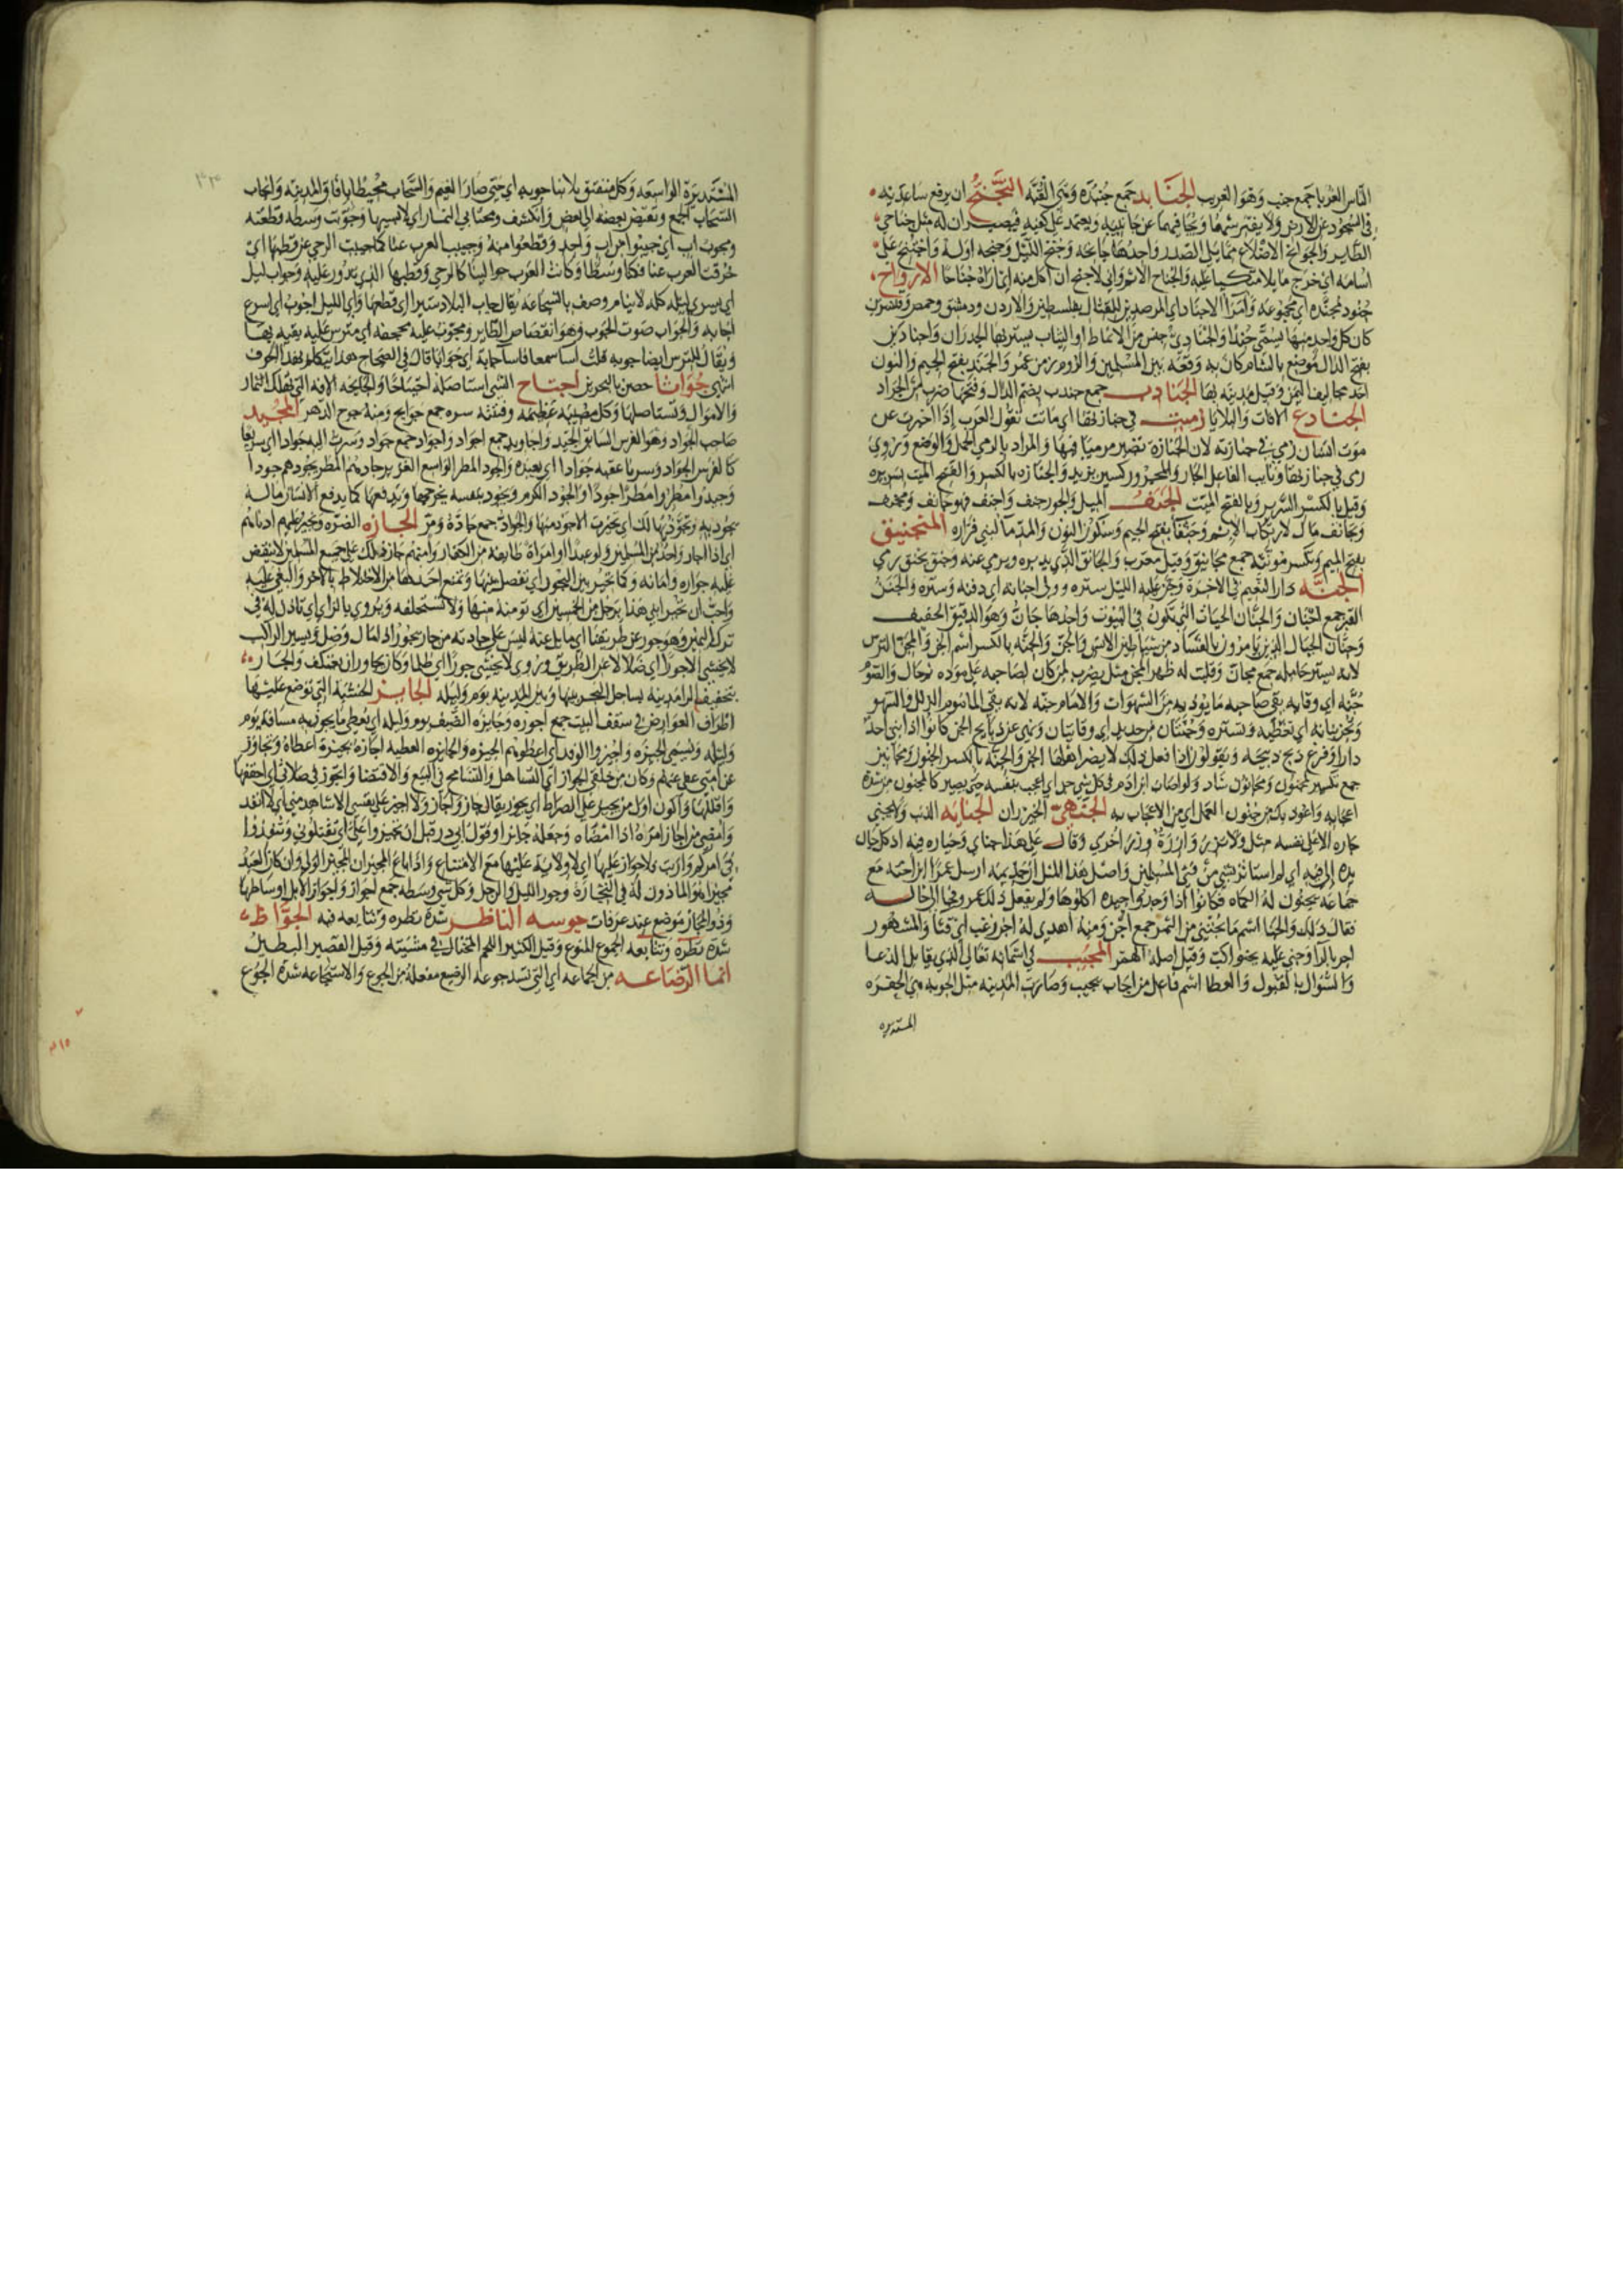 الناس الغرباء جمع جنب وهو الغريب الجنابد جمع جنبذة وهي القبة التجنح ان يرفع ساعديه
في السجود عن الارض ولا يفترشهما ويجافيهما عن جانبيه ويعتمد على كفيه فيصيران له مثل جناحي
الطاير والجوانح الاضلاع مما يلي الصدر واحدها جانحة وجنح الليل وجنحه اوله واجتنح على
اسامة اي خرج مايلا متكيا عليه والجناح الاثم واني لاجنح ان اكل منه اي اراه جناحا الارواح
جنود مجندة اي مجموعة وامرا الاجناد اي المرصدين للقتال بفلسطين والاردن ودمشق وحمص وقنسرين
كان كل واحد منها يسمى جندا والجنادي جنس من الانماط او الثياب يستر بها الجدران واجنادين
بفتح الدال موضع بالشام كان به وقعة بين المسلمين والروم زمن عمر والجند بفتح الجيم والنون
احد مخاليف اليمن وقيل مدينة بها الجنادب جمع جندب بضم الدال وفتحها ضرب من الجراد
الجنادع الافات والبلايا رميت في جنازتها اي ماتت تقول العرب اذا اخبرت عن
موت انسان رمي في جنازته لان الجنازة تصير مرميا فيها والمراد بالرمي الحمل والوضع وروي
رمى في جنازتها ونايب الفاعل الجار والمجرور كسير بزيد والجنازة بالكسر والفتح الميت بسريره
وقيل بالكسر السرير وبالفتح الميت الجنف الميل والجور جنف واجنف فهو جانف ومجنف
وتجانف مال لارتكاب الاثم وجنفا بفتح الجيم وسكون النون والمد ما لبني فزارة المنجنيق
بفتح الميم وتكسر مونثة جمع مجانيق وقيل معرب والجانق الذي يديره ويرمي عنه وجنق يجنق رمي
الجنة دار النعيم في الاخرة وجن عليه الليل ستره وولي اجنانه اي دفنه وستره والجنن
القبر جمع اجنان والجنان الحيات التي تكون في البيوت واحدها جان وهو الدقيق الخفيف
وجنان الجبال الذين يامرون بالفساد من شياطين الانس والجن والجنة بالكسر اسم الجن والمجن الترس
لانه يستر حامله جمع مجان وقلبت له ظهر المجن مثل يضرب لمن كان لصاحبه على مودة ثم حال والصوم
جنة اي وقاية يقي صاحبه ما يوذيه من الشهوات والامام جنة لانه يقي الماموم الزلل والسهو
وتجن بنانه اي تغطيه وتستره وجنتان من حديد اي وقايتان ونهى عن ذبايح الجن كانوا اذا ابنى احد
دارا وفرغ ذبح ذبيحة ويقولون اذا فعل ذلك لا يضر اهلها الجن والجنة بالكسر الجنون ومجانين
جمع تكسير لمجنون ومجانون شاذ ولو اصاب ابن ادم في كل شي جن اي اعجب بنفسه حتى يصير كالمجنون من شدة
اعجابه واعوذ بك من جنون العمل اي من الاعجاب به الجنهي الخيزران الجناية الذنب ولا يجني
جان الا على نفسه مثل ولا تزر وازرة وزر اخرى وقال علي هذا جناي وخياره فيه اذ كل جان
يده الى فيه اي لم استاثر بشي من في المسلمين واصل هذا المثل ان جذيمة ارسل عمرا ابن اخته مع
جماعة يجنون له الكماة فكانوا اذا وجدوا جيدة اكلوها ولم يفعل ذلك عمرو فجا الى خاله
فقال ذلك والجنا اسم ما يجتنى من الثمر جمع اجن ومنه اهدي له اجن زغب اي قثا والمشهور
اجر بالرا وجنى عليه يجنو اكب وقيل اصله الهمز المجيب في اسمائه تعالى الذي يقابل الدعا
والسوال بالقبول والعطا اسم فاعل من اجاب يجيب وصارت المدينة مثل الجوبة هي الحفرة
المستديرة
المستديرة الواسعة وكل منفتق بلا بنا جوبة اي حتى صار الغيم والسحاب محيطا بافاق المدينة وانجاب
السحاب اجتمع وتقبض بعضه الى بعض وانكشف ومجتابي النمار اي لابسيها وجوبت وسطه قطعته
وجيبت العرب عنا كما جيبت الرحى عن قطبها اي
خرقت العرب عنا فكنا وسطا وكانت العرب حوالينا كالرحى وقطبها الذي تدور عليه وجواب ليل
اي يسري ليله كله لا ينام وصف بالشجاعة يقال جاب البلاد سيرا اي قطعها واي الليل اجوب اي اسرع
اجابة والجواب صوت الجوب وهو انقضاض الطاير ومجوب عليه بحجفة اي مترس عليه يقيه بها
ويقال للترس ايضا جوبة قلت اسا سمعا فاسا جابة اي جوابا قال في الصحاح هكذا يتكلم بهذا الحرف
انتهى جواثا حصن بالبحرين اجتاح الشي استاصله اجتياحا والجايحة الافة التي تهلك الثمار
والاموال وتستاصلها وكل مصيبة عظيمة وفتنة مبيرة جمع جوايح ومنه جوح الدهر المجيد
صاحب الجواد وهو الفرس السابق الجيد واجاويد جمع اجواد واجواد جمع جواد وسرت اليه جوادا اي سريعا
كالفرس الجواد وسرنا عقبة جوادا اي بعيدة والجود المطر الواسع الغزير جادهم المطر يجودهم جودا
وجيدوا مطروا مطرا جودا والجود الكرم ويجود بنفسه يخرجها ويدفعها كما يدفع الانسان ماله
يجود به وتجودتها لك اي تخيرت الاجود منها والجواد جمع جادة ومر الجارة الضرة ويجير عليهم ادناهم
اي اذا اجار واحد من المسلمين ولو عبدا او امراة طايفة من الكفار وامنهم جاز ذلك على جميع المسلمين لا ينقض
عليه جواره وامانه وكما تجير بين البحور اي تفصل بينها وتمنع احدها من الاختلاط بالاخر والبغي عليه
واحب ان تجير ابني هذا برجل من الخمسين اي تومنه منها ولا تستحلفه ويروى بالزاي اي تاذن له في
ترك اليمين وهو جور عن طريقنا اي مايل عنه ليس على جادته من جار يجور اذا مال وضل ويسير الراكب
لا يخشى الا جورا اي ضلالا عن الطريق وروي لا يخشى جورا اي ظلما وكان يجاور اي يعتكف والجار
بتخفيف الرا مدينة بساحل البحر بينها وبين المدينة يوم وليلة الجايز الخشبة التي توضع عليها
اطراف العوارض في سقف البيت جمع اجوزة وجايزة الضيف يوم وليلة اي يعطى ما يجوز به مسافة يوم
وليلة وتسمى الجيزة واجيزوا الوفد اي اعطوهم الجيزة والجايزة العطية اجازه يجيزه اعطاه وتجاوز
عن امتي عفى عنهم وكان من خلقي الجواز اي التساهل والتسامح في البيع والاقتضا واتجوز في صلاتي اي اخففها
واقللها واكون اول من يجيز على الصراط اي يجوز يقال جاز واجاز ولا اجيز على نفسي الا شاهدا مني اي لا انفذ
وامضي من اجاز امره اذا امضاه وجعله جايزا وقول ابي ذر قبل ان تجيزوا علي اي تقتلوني وتنفذوا
في امركم ولا جواز عليها اي لا ولاية عليها مع الامتناع واذا باع المجيزان المجيز الولي وان كان العبد
مجيزا هو الماذون له في التجارة وجوز الليل والرجل وكل شي وسطه جمع اجواز واجواز الابل اوساطها
وذو المجاز موضع عند عرفات جوسه الناظر شدة نظره وتتابعه فيه الجواظ
شدة نظره وتتابعه الجموع المنوع وقيل الكثير اللحم المختال في مشيته وقيل القصير البطين
انما الرضاعة من المجاعة اي التي تسد جوعة الرضيع مفعلة من الجوع والاستجاعة شدة الجوع